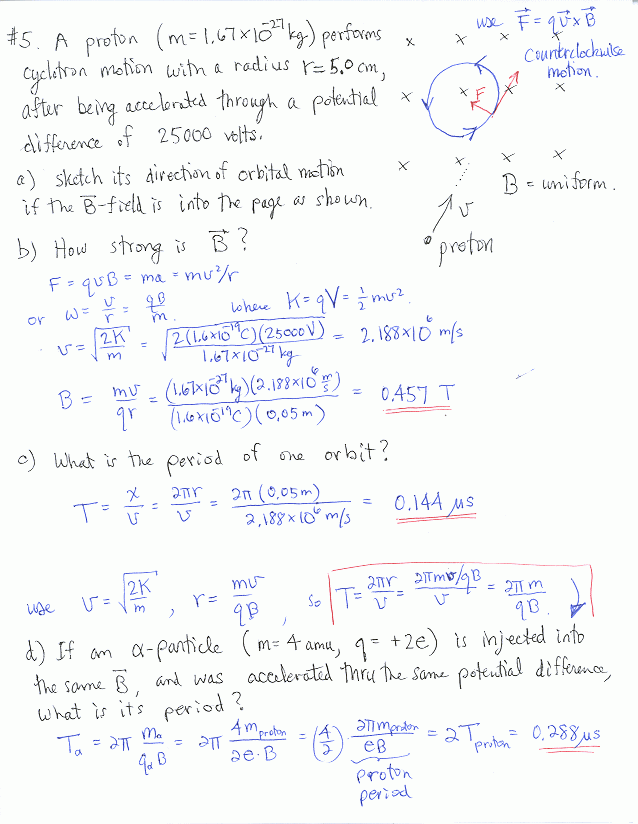 #5. A proton (m=1.67×10⁻²⁷kg) performs
cyclotron motion with a radius r=5.0cm,
after being accelerated through a potential
difference of 25000 volts.
use F⃗ = qv⃗×B⃗
Counterclockwise
motion.
F
a) sketch its direction of orbital motion
if the B⃗-field is into the page as shown.
B = uniform.
v
proton
b) How strong is B⃗?
F = qvB = ma = mv²/r
or ω = v/r = qB/m. where K = qV = ½mv².
v = √(2K/m) = √(2(1.6×10⁻¹⁹C)(25000V)/1.67×10⁻²⁷kg) = 2.188×10⁶ m/s
B = mv/qr = (1.67×10⁻²⁷kg)(2.188×10⁶ m/s)/(1.6×10⁻¹⁹C)(0.05m) = 0.457 T
c) What is the period of one orbit?
T = x/v = 2πr/v = 2π(0.05m)/2.188×10⁶m/s = 0.144 μs
use v = √(2K/m), r = mv/qB, so T = 2πr/v = 2πmv/qB/v = 2πm/qB.
d) If an α-particle (m=4amu, q=+2e) is injected into
the same B⃗, and was accelerated thru the same potential difference,
what is its period?
Tα = 2π mα/qαB = 2π 4mproton/2e·B = (4/2)·2πmproton/eB = 2Tproton = 0.288μs
proton
period